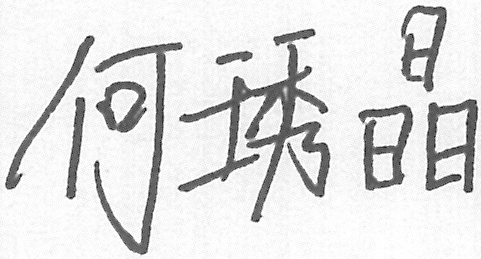 何琇晶